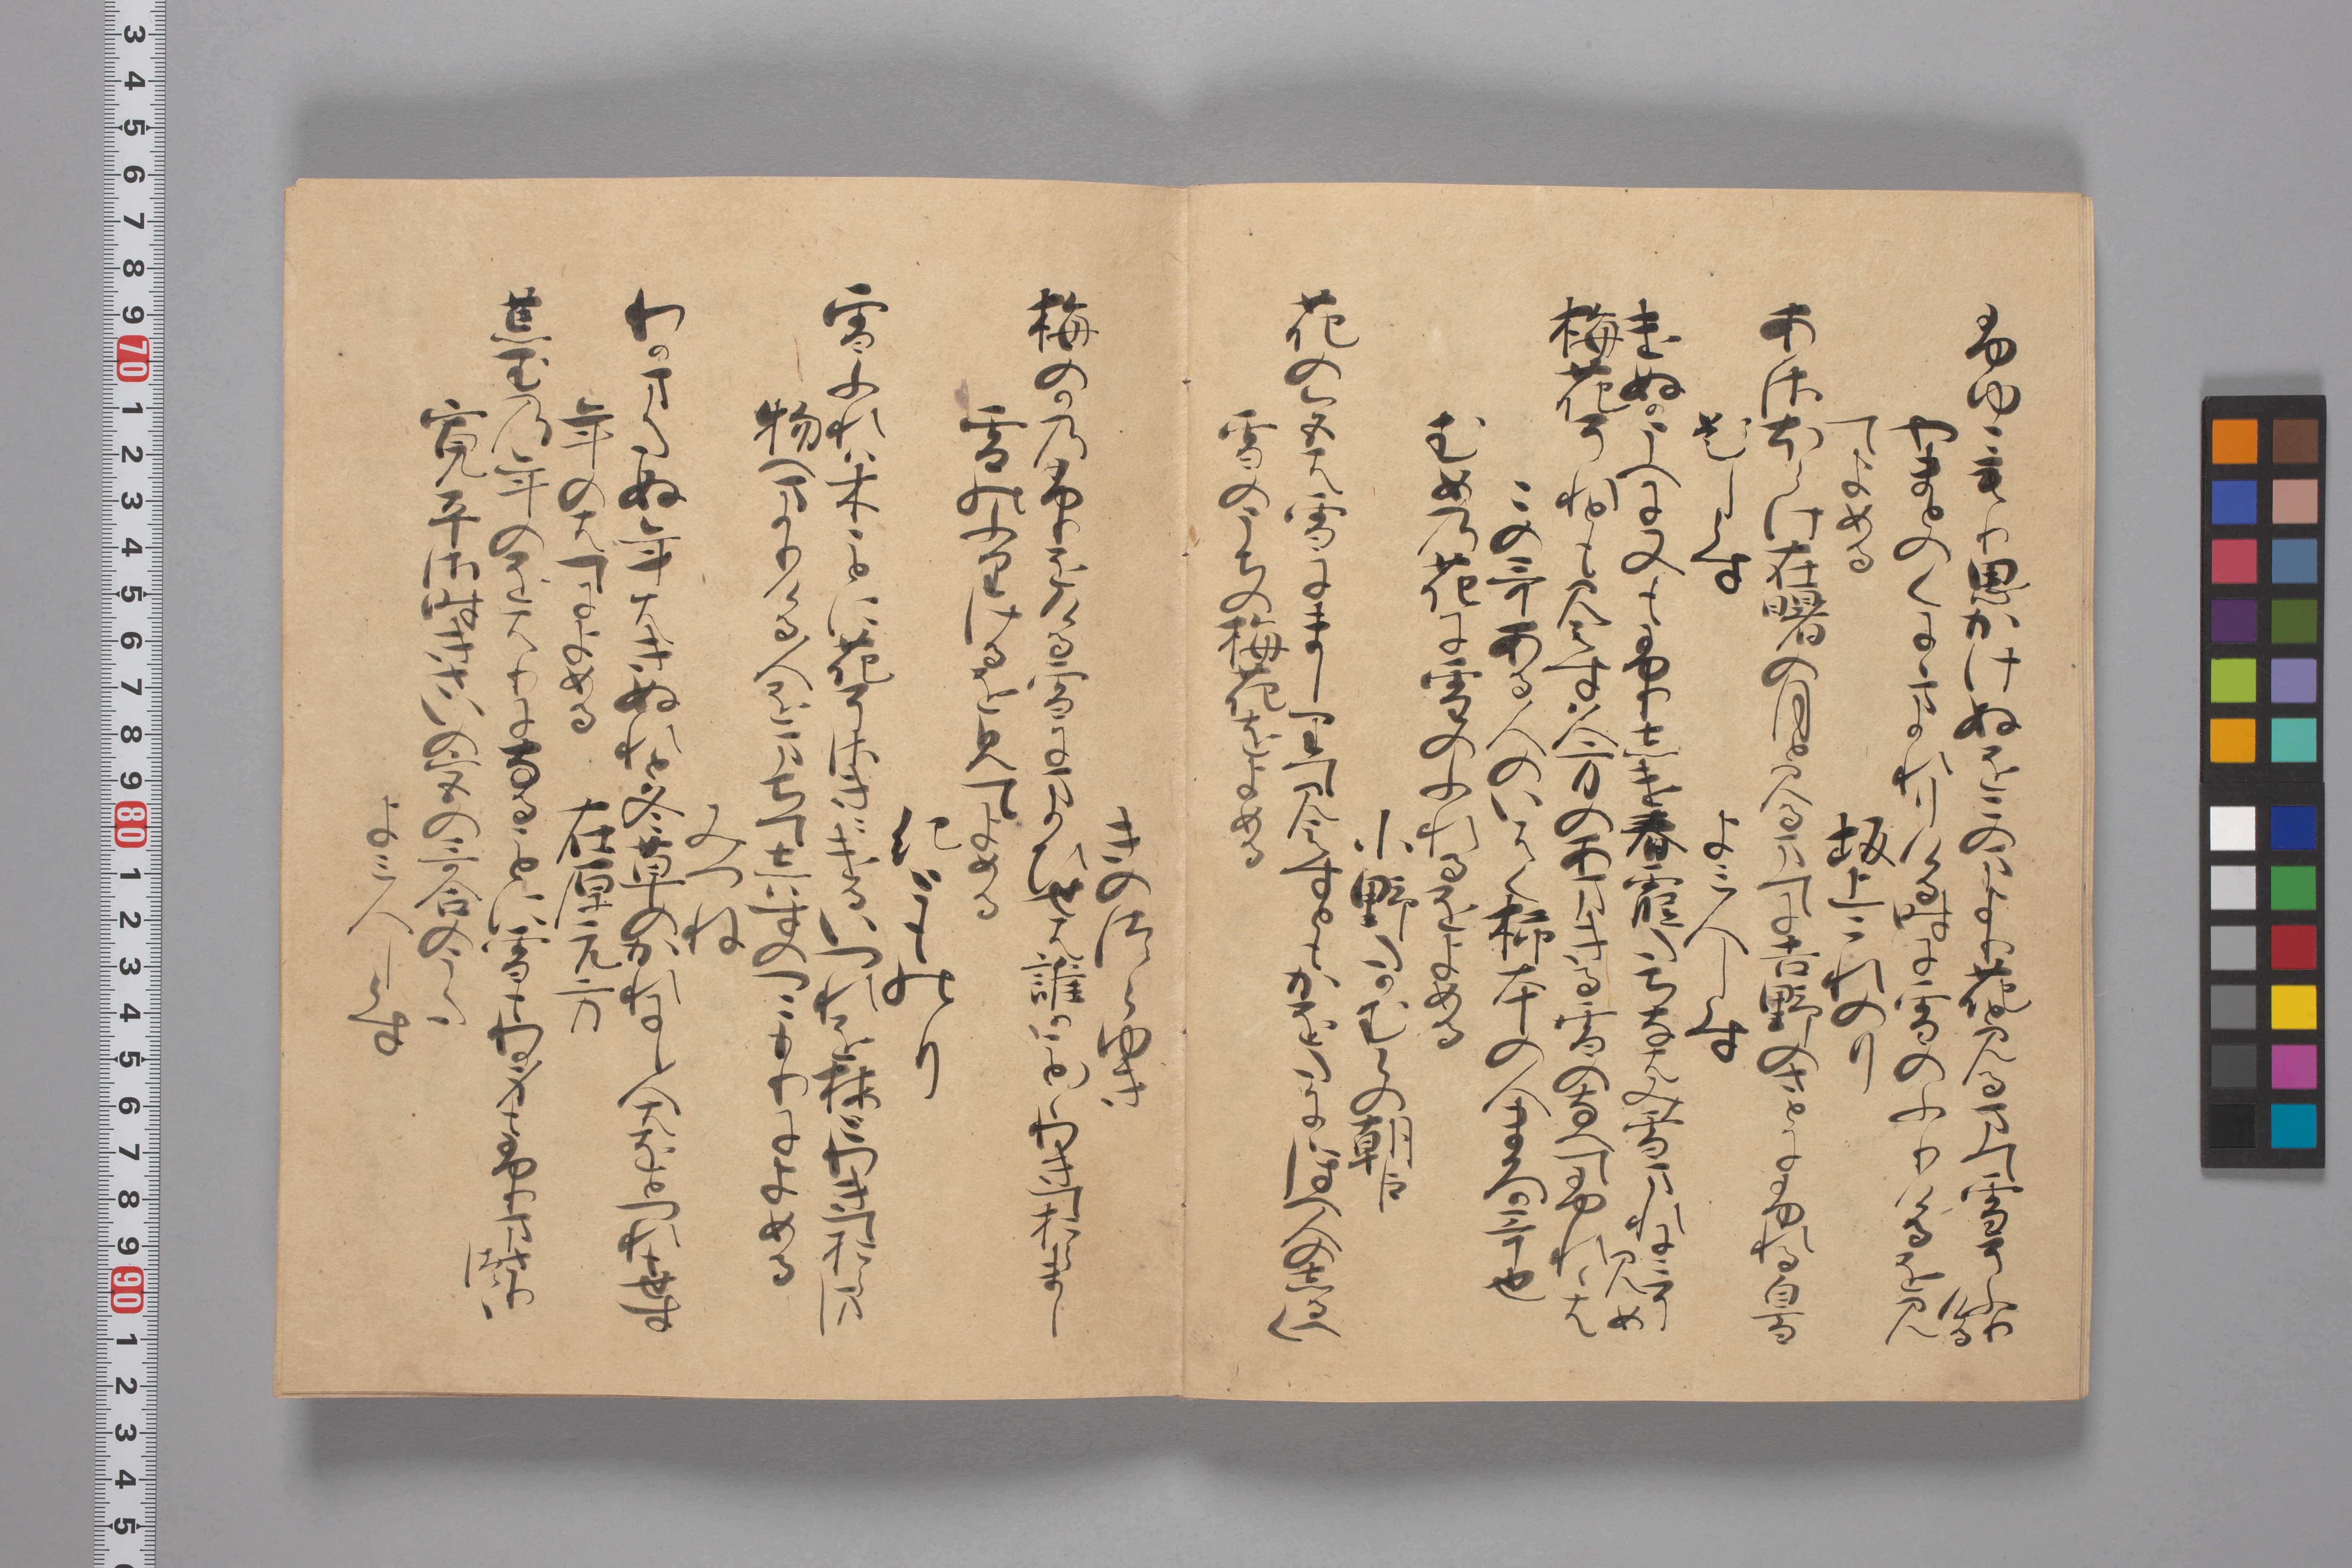 冬こもり思かけぬをこのまより花とみるまて雪そふり
ける
やまとのくにゝまかれりける時に雪のふりけるを見て
よめる
坂上これのり
あさほらけ在明の月とみるまてによしのゝ里にふれるしら雪
題しらす　よみ人しらす
けぬかうへに又もふりしけ春霞たちなはみ雪まれにこそ
みめ
梅花それともみえす久方のあまきる雪のなへてふれゝは
このうたはある人のいはく柿本の人まろか哥也
むめの花に雪のふれるをよめる
小野のたかむらの朝臣
花の色は雪にましりてみえすともかをたにゝほへ人のしるへく
雪のうちの梅花をよめる
きのつらゆき
梅のかのふりをける雪にまかひせはたれかことことわきておらまし
雪のふりけるをみてよめる
紀とものり
雪ふれは木ことに花そさきにけるいつれを梅とわきておらまし
物へまかりける人をまちてしはすのつこもりによめる
みつね
わかまたぬ年はきぬれと冬草のかれにし人はをとつれもせす
年のはてによめる　在原元方
あらたまの年のをはりになることに雪もわか身もふりまさりつゝ
寛平御時きさいの宮の哥合のうた
よみ人しらす